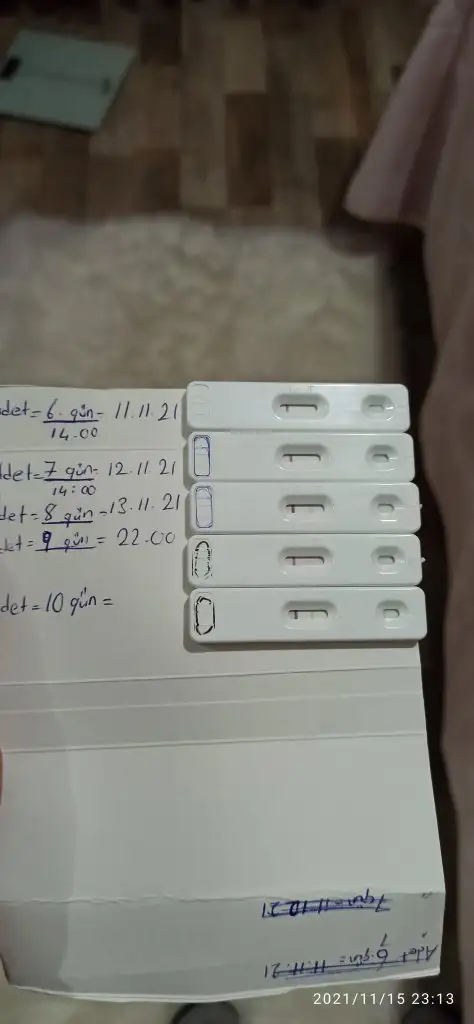 det = 6. gün = 11.11.21
14.00
det = 7 gün = 12.11.21
14:00
det = 8 gün = 13.11.21
det = 9 gün = 22.00
det = 10 gün =
7 gün = 11.10.21
Adet 6. gün = 11.11.21
2021/11/15 23:13